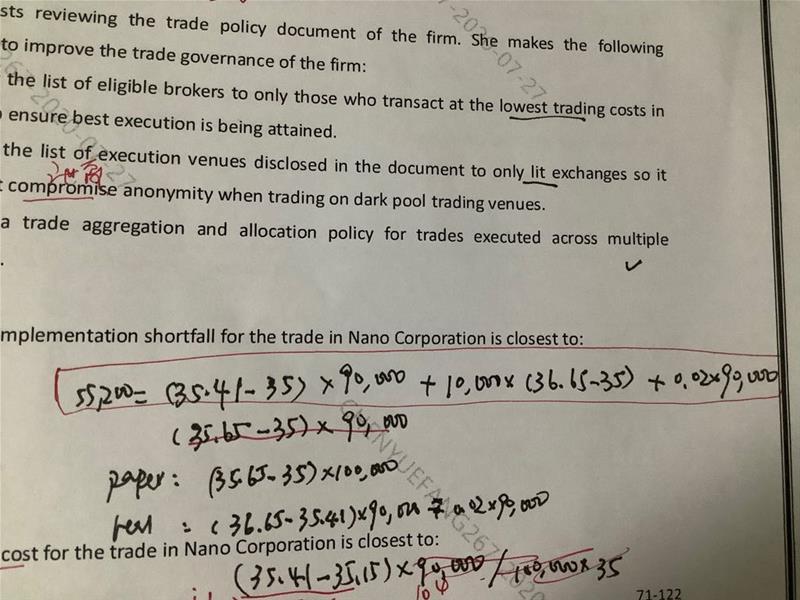 sts reviewing the trade policy document of the firm. She makes the following
to improve the trade governance of the firm:
the list of eligible brokers to only those who transact at the lowest trading costs in
ensure best execution is being attained.
the list of execution venues disclosed in the document to only lit exchanges so it
compromise anonymity when trading on dark pool trading venues.
a trade aggregation and allocation policy for trades executed across multiple
.
mplementation shortfall for the trade in Nano Corporation is closest to:
55,200 = (35.41-35) × 90,000 + 10,000 × (36.65-35) + 0.02×90,000
(35.65-35) × 90,000
paper: (35.65-35)×100,000
real : (36.65-35.41)×90,000 0.02×90,000
cost for the trade in Nano Corporation is closest to:
(35.41-35.15)×90,000 / 100,000×35
71-122